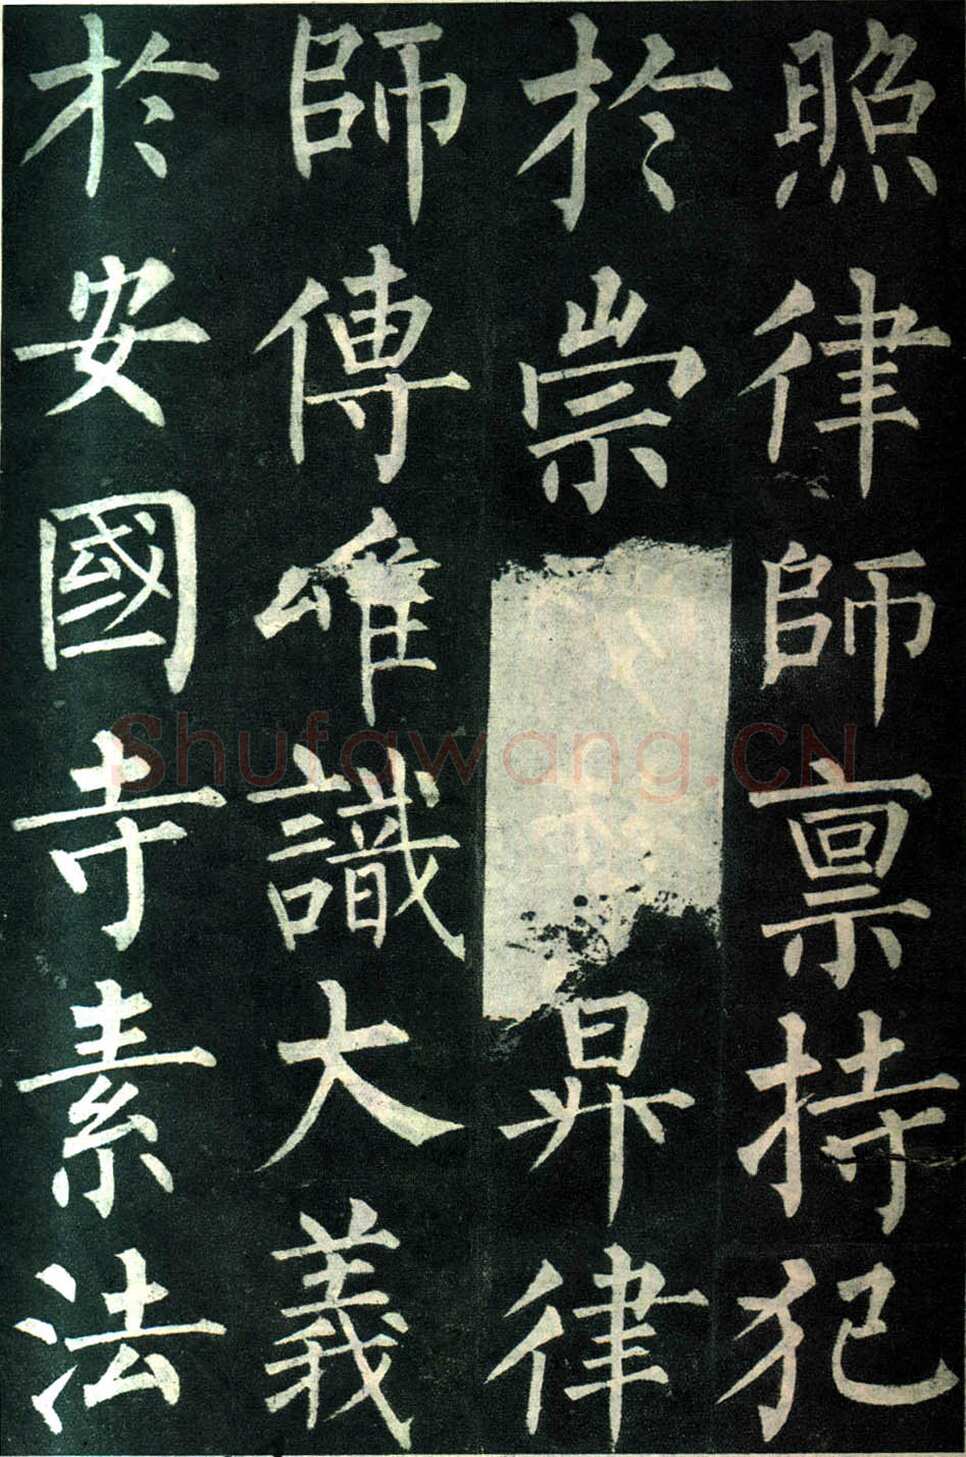 照律師禀持犯
於崇昇律
師傳唯識大義
於安國寺素法
Shufawang.CN